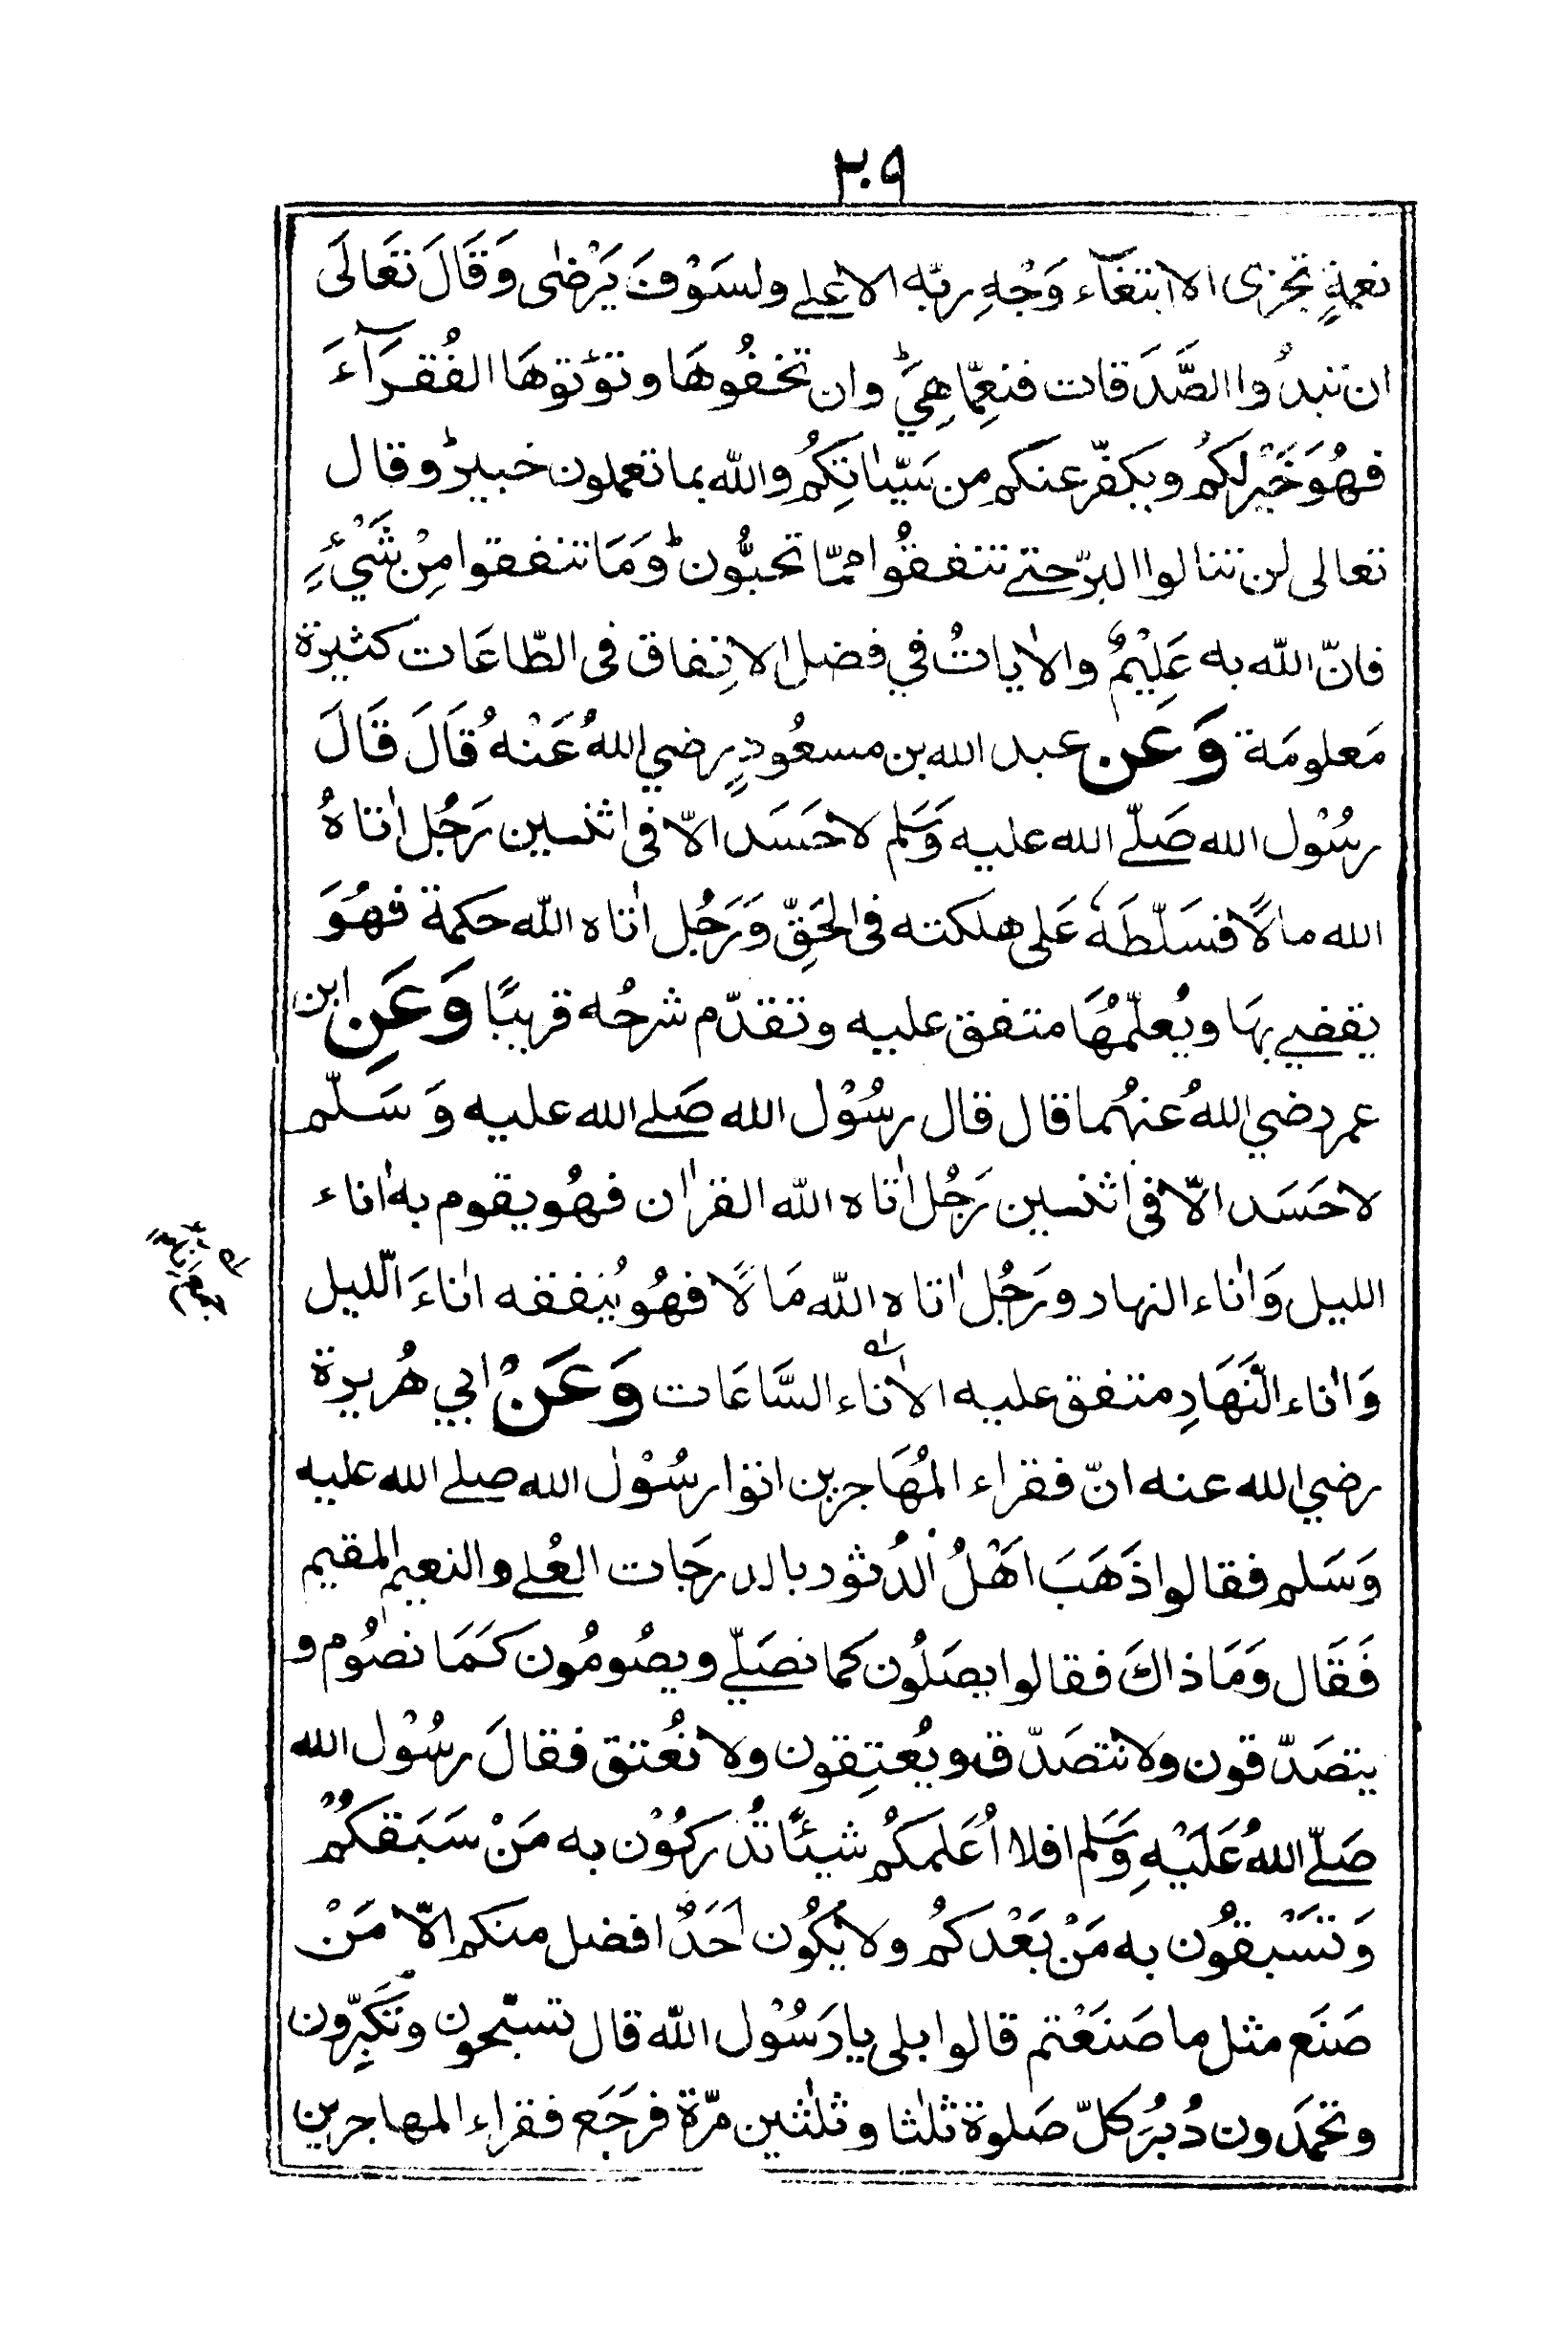 ٢٠٩
نعمةٍ تجزى الا ابتغآء وَجْهِ ربّه الاعلے ولسَوْفَ يَرْضٰى وَقَالَ تَعَالَى
ان تبدُوا الصَّدَقات فنعِمّا هِيَ ط وان تخفُوهَا وتؤتوهَا الفُقَرَآءَ
فهُوَ خَيْر لكُم ويكفّر عنكم من سَيّاٰتِكُم والله بما تعملون خبير ط وقال
تعالى لن تنالوا البرّ حتے تنفقُوا ممّا تحبُّون ط وَمَا تنفقوا مِنْ شَيْءٍ
فانّ الله به عَلِيْمٌ والاٰياتُ في فضل الانِفاق فى الطّاعَات كثيرة
مَعلومَة وَعَن عبد الله بن مسعُودٍ رضي اللهُ عَنْهُ قَالَ قَالَ
رسُوْل الله صَلّے الله عليه وَسَلم لاحَسَد الاّ فى اثنين رَجُل اٰتاهُ
الله مالًا فسَلّطَهٗ عَلى هلكته فى الحَقِّ وَرَجُل اٰتاه الله حكمة فهُوَ
يقضے بهَا ويُعلّمُهَا متفق عليه وتقدّم شرحُه قريبًا وَعَنِ ابن
عمر رضي اللهُ عنهُما قال قال رسُوْل الله صَلے الله عليه وَسَلّم
لاحَسَد الاّ فى اثنين رَجُل اٰتاه الله القراٰن فهُو يقوم به اٰناء
الليل وَاٰناء النهار ورَجُل اٰتاه الله مَالًا فهُو يُنفقه اٰناءَ الّليل
وَاٰناء الّنَهَارِ متفق عليه الاٰناء السَّاعَات وَعَنْ ابي هُريرة
رضي الله عنه انّ فقراء المُهَاجرين اتوا رسُوْل الله صلے الله عليه
وَسَلم فقالوا ذَهَبَ اَهْلُ الدُثور بالدرجَات العُلے والنعيم المقيم
فَقَال وَمَا ذاكَ فقالوا يصَلُون كما نصَلّي ويصُومُون كَمَا نصُوم و
يتصَدّقون ولانتصَدّق ويُعتِقون ولا نُعتق فقالَ رسُوْل الله
صَلّے اللهُ عَلَيْهِ وَسَلم افلا اُعَلمكُم شيئًا تُدْركُوْن به مَنْ سَبَقكُمْ
وَتَسْبقُون به مَنْ بَعْدكُم ولا يَكُون اَحَدٌ افضل منكم الاّ مَنْ
صَنَع مثل ما صَنَعْتم قالوا بلى يا رَسُوْل الله قال تسبّحون وتكَبّرون
وتحمَدون دُبُرَ كلّ صَلوة ثلٰثا وثلٰثين مرّة فرجَع فقراء المهاجرين